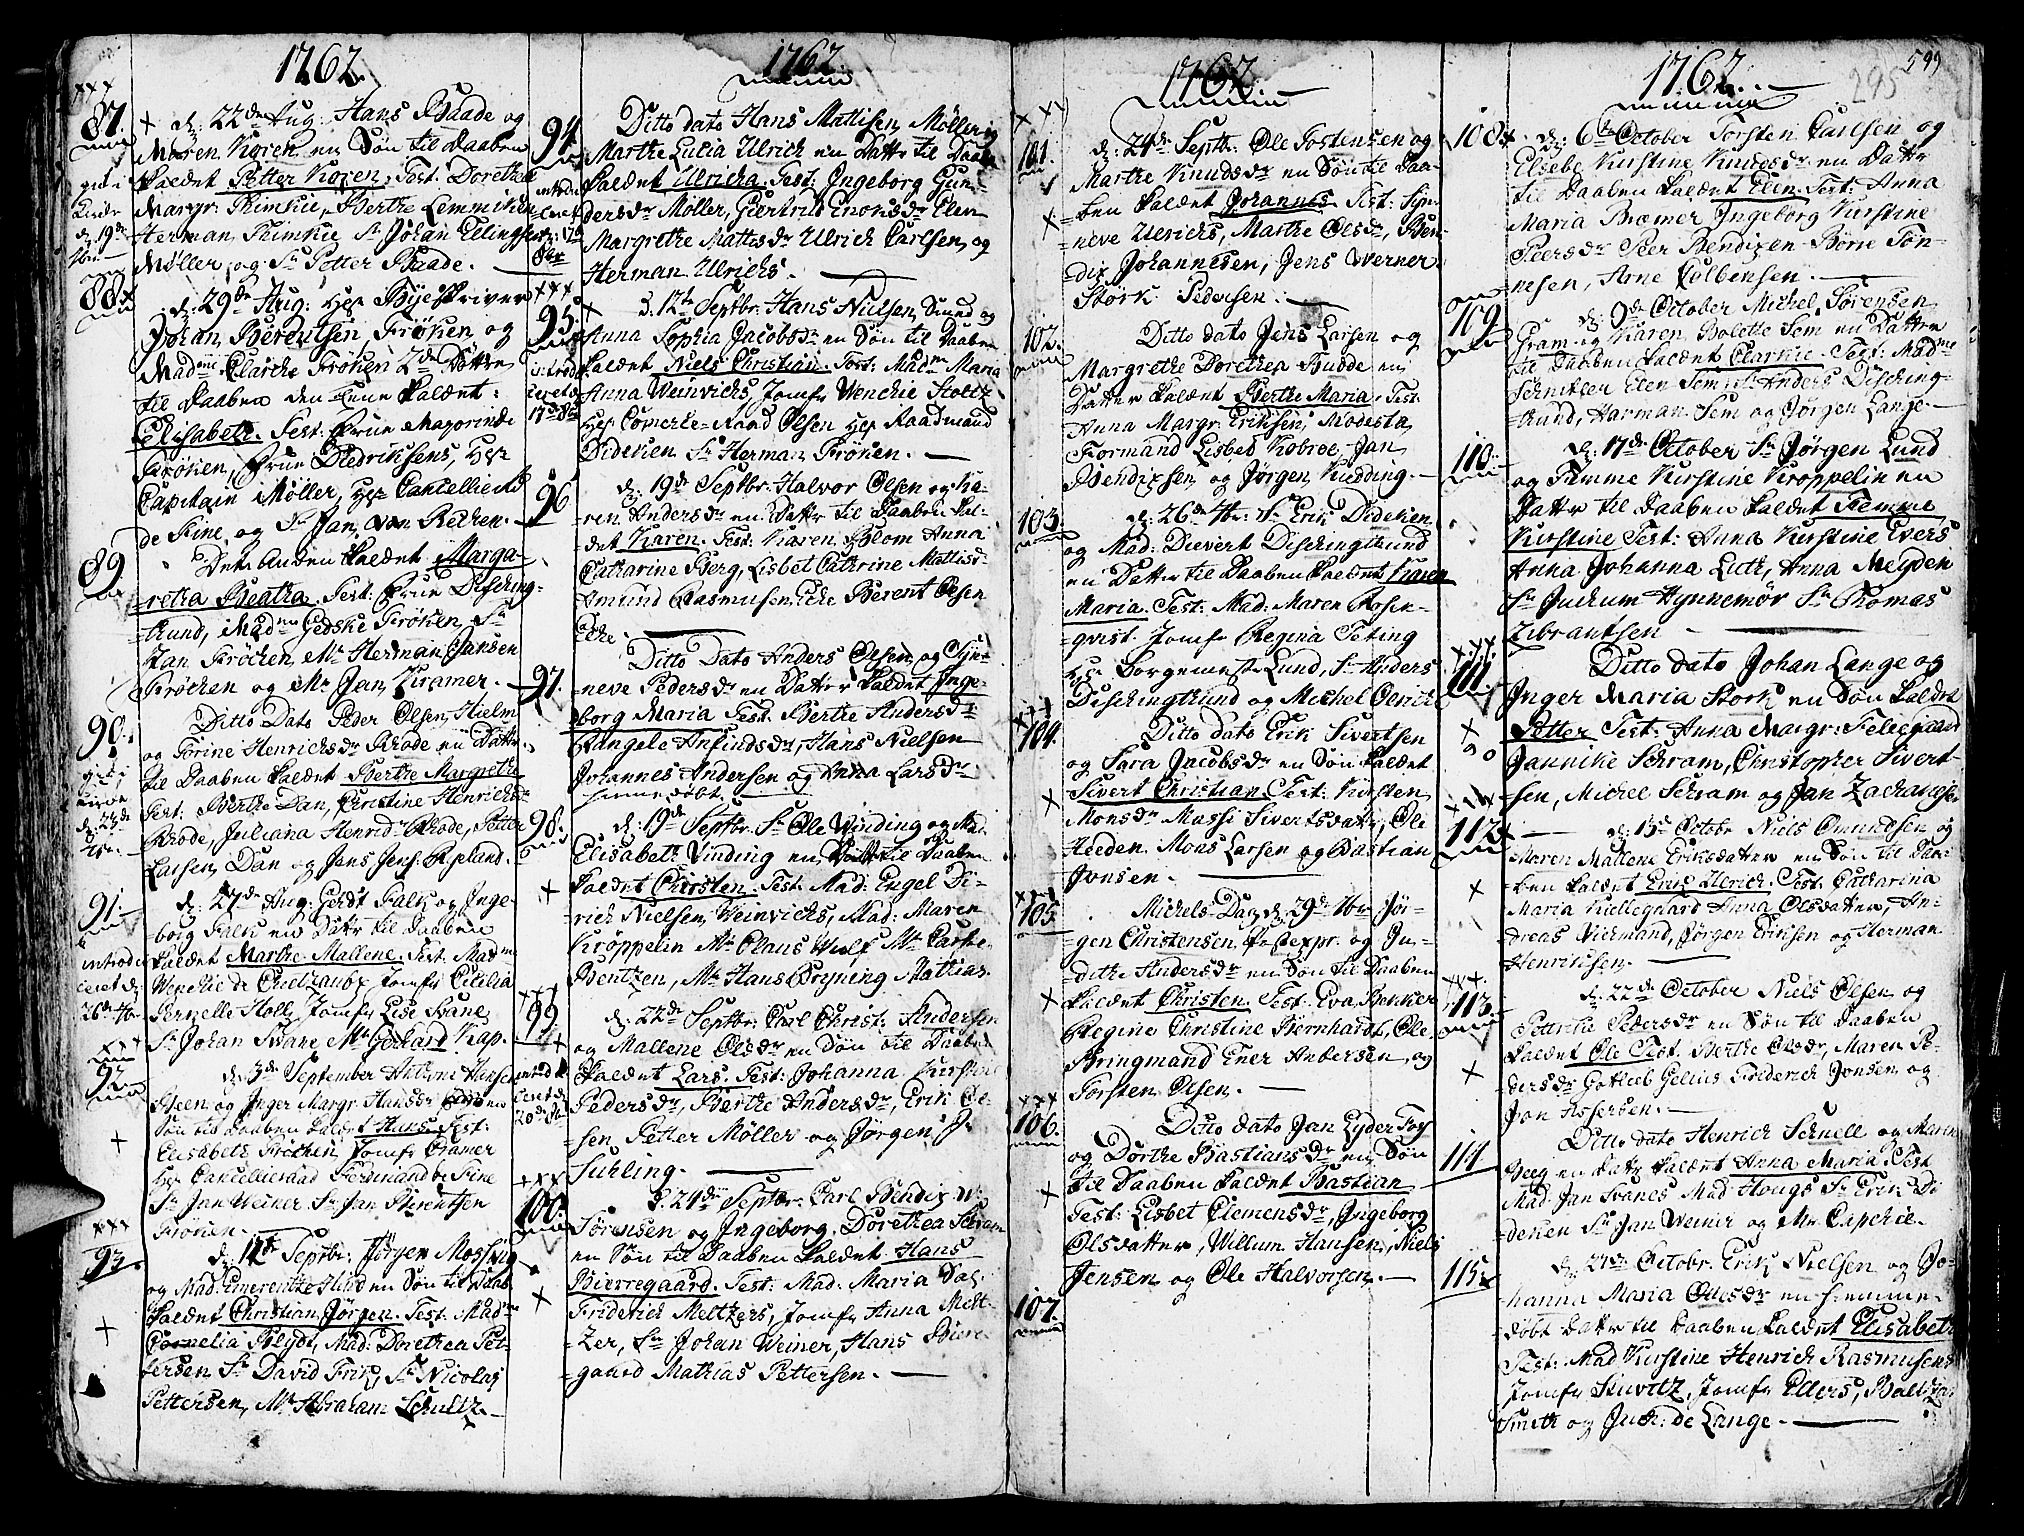 1762
87.
d: 22de Aug: Hans Baade og
Maren Koren en Søn til Daaben
kaldet Petter Koren. Test: Dorethe
Margr: Herman
Møller, og Sr Petter Baade.
88
d: 29de Aug: Hr Byeskriver
Johan Berentsen Frøken, og
Madme Clarche Frøken 2de Døttre
til Daaben den Eene kaldet:
Elisabeth. Test: Frue Magorinde
Frøken, Frue Diedriksens, Hr
Capitain Møller, Hr Cancellieraad
de Fine, og Sr Jan von Rechen.
89
Det Anden kaldet Marga-
retha Beatha. Test: Frue Disching-
tund, Madme Gedske Frøken, Sr
Jan Frøchen, Mr Herman Jansen
Frøchen og Mr Jan Kramer.
90.
Ditto Dato Peder Olsen Hielm
og Torine Henrichsdr Brode en Datter
til Daaben kaldet Berthe Margrethe
Test: Berthe Dan, Christine Henrichsdr
Brode, Juliana Henrichsdr Brode, Petter
Larsen Dan og Jans Jens:
91.
d: 27de Aug: Gerdt Falk og Inge-
borg Falk en Dattr til Daaben
kaldet Marthe Mallene. Test: Madme
Wenche de Jomfr Cicilia
Pernelle Holl, Jomfr Lise Svane,
Sr Johan Svane Mr Gerhard Kap.
92
d: 3de September Anthoni Hansen
Steen og Inger Margr: Hansdr
Søn til Daaben kaldet Hans Test:
Elisabeth Frøchen, Jomfr Cramer
Hr Cancellieraad Ferdinand de Fine
Sr Jan Weiner Sr Jan Berentsen
Frøken.
93.
d: 12te Septbr: Jørgen
og Mad: Emerentze Hund en Søn til Daab
kaldet Christian Jørgen. Test: Madme
Cornelia Bligdt, Mad: Dorethea Pet-
tersen Sr David Frik, Sr Nicolaj
Pettersen, Mr Abraham Schultz.
1762
94
Ditto dato Hans Mattisen Møller og
Marthe Lucia Ulrich en Dattr til Daab
kaldet Ulricha. Test: Ingeborg Gun-
dersdr Møller, Giertrud Enoksdr Elen
Margrethe Mattisdr Ulrich Carlsen, og
Herman Ulrichs.
95.
d. 12te Septbr: Hans Nielsen Smed og
Anna Sophia Jacobsdr en Søn til Daaben
kaldet Niels Christian. Test: Madme Maria
Anna Weinrichs, Jomfr Wenche Stoltz
Hr Comerce-Raad Olsen Hr Raadmand
Dideken Sr Herman Frøken.
96
d: 19de Septbr: Halvor Olsen og Ka-
ren Andersdr en Dattr til Daaben kal-
det Karen. Test: Karen Blom Anna
Catharine Berg, Lisbet Cathrine Mattisdr
Amund Rasmusen Eche Berent Olsen
Eche.
97.
Ditto Dato Anders Olsen og Syn-
neve Pedersdr en Datter kaldet Inge-
borg Maria Test: Berthe Andersdr
Rangele Anfindsdr, Hans Nielsen
Johannes Andersen og Anna Larsdr
hiemmedøbt.
98.
d: 19de Septbr: Sr Ole Winding og Mad.
Elisabeth Vinding en Datter til Daaben
kaldet Christen. Test: Mad: Engel Di-
rich Nielsen Weinrichs, Mad: Maren
Krøppelin Mr Claus Wulf Mr Carsten
Bentzen, Mr Hans Bryning Mathias.
99
d: 22de Septbr: Carl Christ: Andersen
og Mallene Olsdr en Søn til Daaben
kaldet Lars. Test: Johanna Kirstine
Pedersdr, Berthe Andersdr, Erik Ol-
sen, Petter Møller og Jørgen J.
Suhling.
100.
d. 24de Septbr: Carl Bendix
Sørensen og Ingeborg Dorethea Schram
en Søn til Daaben kaldet Hans
Bierregaard. Test: Mad: Maria Dal,
Friderich Meltzers, Jomfr Anna Melt-
zer, Sr Johan Weiner, Hans Biere-
gaard Mathias Pettersen.
1762
101.
d: 24de Septbr: Ole Tostensen og
Marthe Knudsdr en Søn til Daa-
ben kaldet Johannes Test: Syn-
neve Ulrichs, Marthe Olsdr, Ben-
dix Johannesen, Jens Werner
Stork Pedersen.
102.
Ditto dato Jens Larsen og
Margrethe Dorethea Budde en
Datter kaldet Berthe Maria. Test.
Anna Margr: Eriksen, Modesta
Formand Lisbed Kobroe, Jan
Bendixsen og Jørgen Kudding.
103.
d: 26de 7br: Sr Erik Dideken
og Mad: Dievert Dischingtund
en Datter til Daaben kaldet Karen
Maria. Test: Mad: Maren Rosen-
qvist. Jomfr Regina Teting
Hr Borgemester Lund, Sr Anders
Dischingtund og Michel Olrich
104.
Ditto dato Erik Sivertsen
og Sara Jacobsdr en Søn kaldet
Sivert Christian Test: Kirsten
Monsdr Massi Sivertsdatr, Ole
Heeden. Mons Larsen og Bastian
Jonsen.
105
Michels-Dag d: 29de 7br Jør-
gen Christensen, Postexpr: og Ju-
dithe Andersdr en Søn til Daaben
kaldet Christen. Test: Eva Bønker
Regine Christine Bernhardt, Ole
Bringmand Ener Andersen og
Torsten Olsen.
106.
Ditto dato Jan Lyder Foss
og Dorthe Bastiansdr en Søn
til Daaben kaldet Bastian
Test: Lisbet Clemensdr, Ingeborg
Olsdatter, Willum Hansen, Niels
Jensen og Ole Halvorsen.
107.
1762
599
295
108.
d: 6te October Torsten Carlsen og
Elsebe Kirstine Knudsdr en Dattr
til Daaben kaldet Elen. Test: Anna
Maria Bræmer Ingeborg Kirstine
Peersdr Peer Bendixen Børre Tøn-
nesen, Arne Colbensen.
109.
d: 9de October Michel Sørensen
Gram og Karen Bolette Sem en Dattr
til Daaben kaldet Clarche. Test: Madme
Schnitler Elen Sem Sr Anders Disching-
tund, Harman Sem og Jørgen Lange
110.
d: 17de October Sr Jørgen Lund
og Femme Kirstine Krøppelin en
Datter til Daaben kaldet Femme
Kirstine Test: Anna Kirstine Evers
Anna Johanna Luth, Anna Megden
Sr Juchum Hynnemør Sr Thomas
Zibrantsen
111.
Ditto dato Johan Lange og
Inger Maria Stork en Søn kaldet
Petter Test: Anna Margr: Fellegaard
Jannike Schram, Christopher Sivert-
sen, Michel Schram og Jan Zachariasen
112.
d: 15de Octobr Niels Omundsen og
Maren Mallene Eriksdatter en Søn til Daa-
ben kaldet Erik Ulrich. Test: Catharina
Maria Kiellegaard Anna Olsdatter, An-
dreas Niermand, Jørgen Eriksen og Herman
Henriksen.
113.
d: 22de October Niels Olsen og
Petternille Pedersdr en Søn til Daaben
kaldet Ole Test: Berthe Olsdr, Maren Pe-
dersdr Gotlieb Gelius Friderich Jonsen og
Jon Assersen.
114
Ditto dato Henrich Schnell og Maren
Veeg en Dattr kaldet Anna Maria. Test
Mad: Jan Svanes Mad: Hougs Sr Erik Di
deken Sr Jan Weiner og Mr Capchie.
115.
d: 27de Octobr: Erik Nielsen og Jo-
hanna Maria Ottisdr en hiemme-
døbt Dattr til Daaben kaldet Elisabeth
Test: Mad Kirstine Henrich Rasmusens
Jomfr Stuvitz, Jomfr Ellers, Baltzar
Smith og Juch: de Lange.